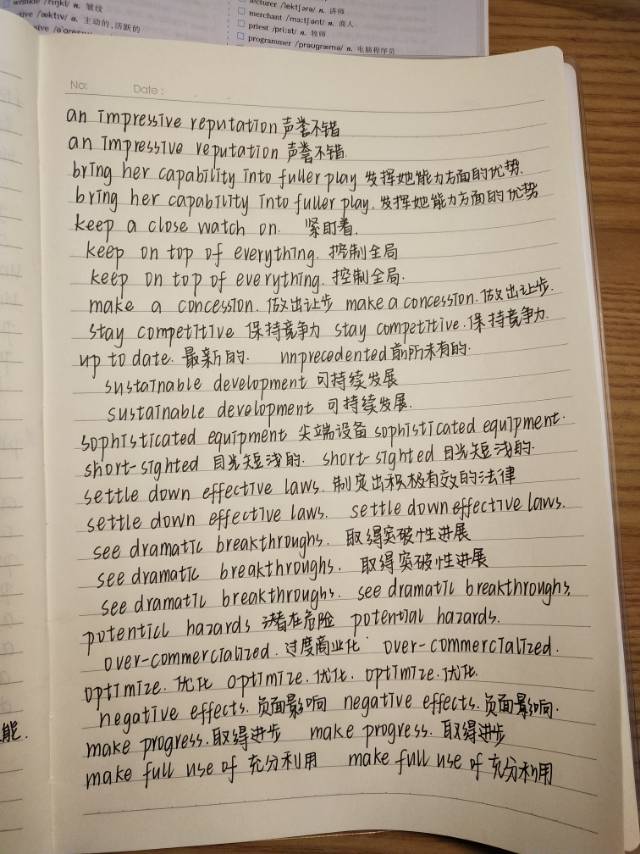 n. 皱纹
/ˈæktɪv/ a. 主动的,活跃的
lecturer /ˈlektʃərə/ n. 讲师
merchant /ˈmɜːtʃənt/ n. 商人
priest /priːst/ n. 牧师
programmer /ˈprəʊɡræmə/ n. 电脑程序员
No:
Date:
an impressive reputation 声誉不错
an impressive reputation 声誉不错
bring her capability into fuller play 发挥她能力方面的优势.
bring her capability into fuller play. 发挥她能力方面的优势
keep a close watch on. 紧盯着.
keep on top of everything. 控制全局
keep on top of everything. 控制全局.
make a concession. 做出让步 make a concession. 做出让步.
stay competitive 保持竞争力 stay competitive. 保持竞争力.
up to date. 最新的. unprecedented 前所未有的.
sustainable development 可持续发展
sustainable development 可持续发展.
sophisticated equipment 尖端设备 sophisticated equipment.
short-sighted 目光短浅的. short-sighted 目光短浅的.
settle down effective laws. 制定出积极有效的法律
settle down effective laws. settle down effective laws.
see dramatic breakthroughs. 取得突破性进展
see dramatic breakthroughs. 取得突破性进展
see dramatic breakthroughs. see dramatic breakthroughs.
potenticl hazards 潜在危险 potential hazards.
over-commercialized. 过度商业化 over-commercialized.
optimize. 优化 optimize. 优化. optimize. 优化.
negative effects. 负面影响 negative effects. 负面影响.
make progress. 取得进步 make progress. 取得进步
make full use of 充分利用 make full use of 充分利用
能.